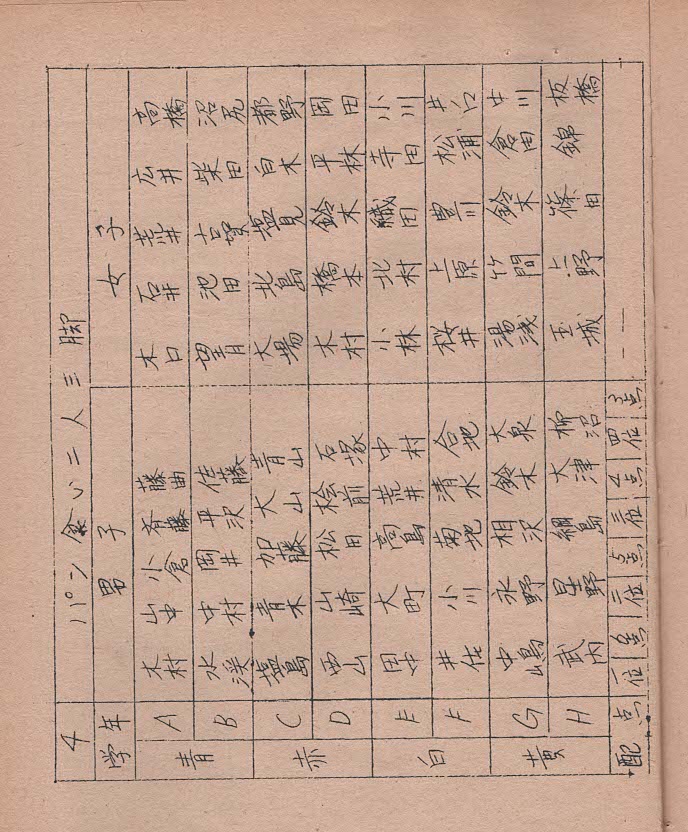 4 パン食い二人三脚
学年 男子 女子
青 A 木村 山中 小倉 斉藤 藤曲 木口 石井 荒井 広井 高橋
B 水渓 中村 岡井 平沢 佐藤 望月 池田 古賀 柴田 沼尻
赤 C 塩島 青木 加藤 大山 青山 大場 北島 塩見 白木 都野
D 西山 山崎 松田 桧前 石塚 木村 橋本 鈴木 平林 岡田
白 E 田中 大町 高島 荒井 中村 小林 北村 織田 寺田 小川
F 井佐 小川 菊地 清水 合地 桜井 上原 豊川 松浦 井口
黄 G 中嶋 永野 相沢 鈴木 大泉 湯浅 竹間 鈴木 倉田 中川
H 武内 星野 綱島 大津 柳沼 玉城 上野 篠田 錦 板橋
配点 一位 6点 二位 5点 三位 4点 四位 3点